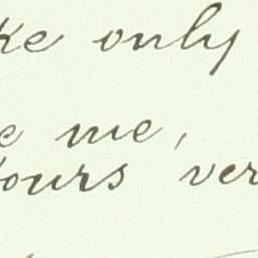 ke only
e me,
ours ver